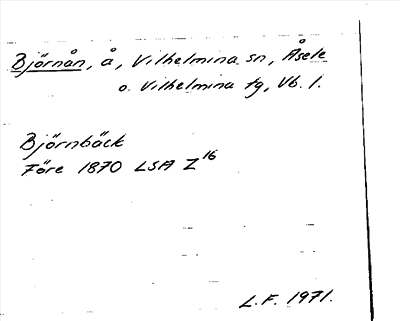 Björnån, å, Vilhelmina sn, Åsele
o. Vilhelmina tg, Vb. l.
Björnbäck
Före 1870 LSA Z16
L.F. 1971.